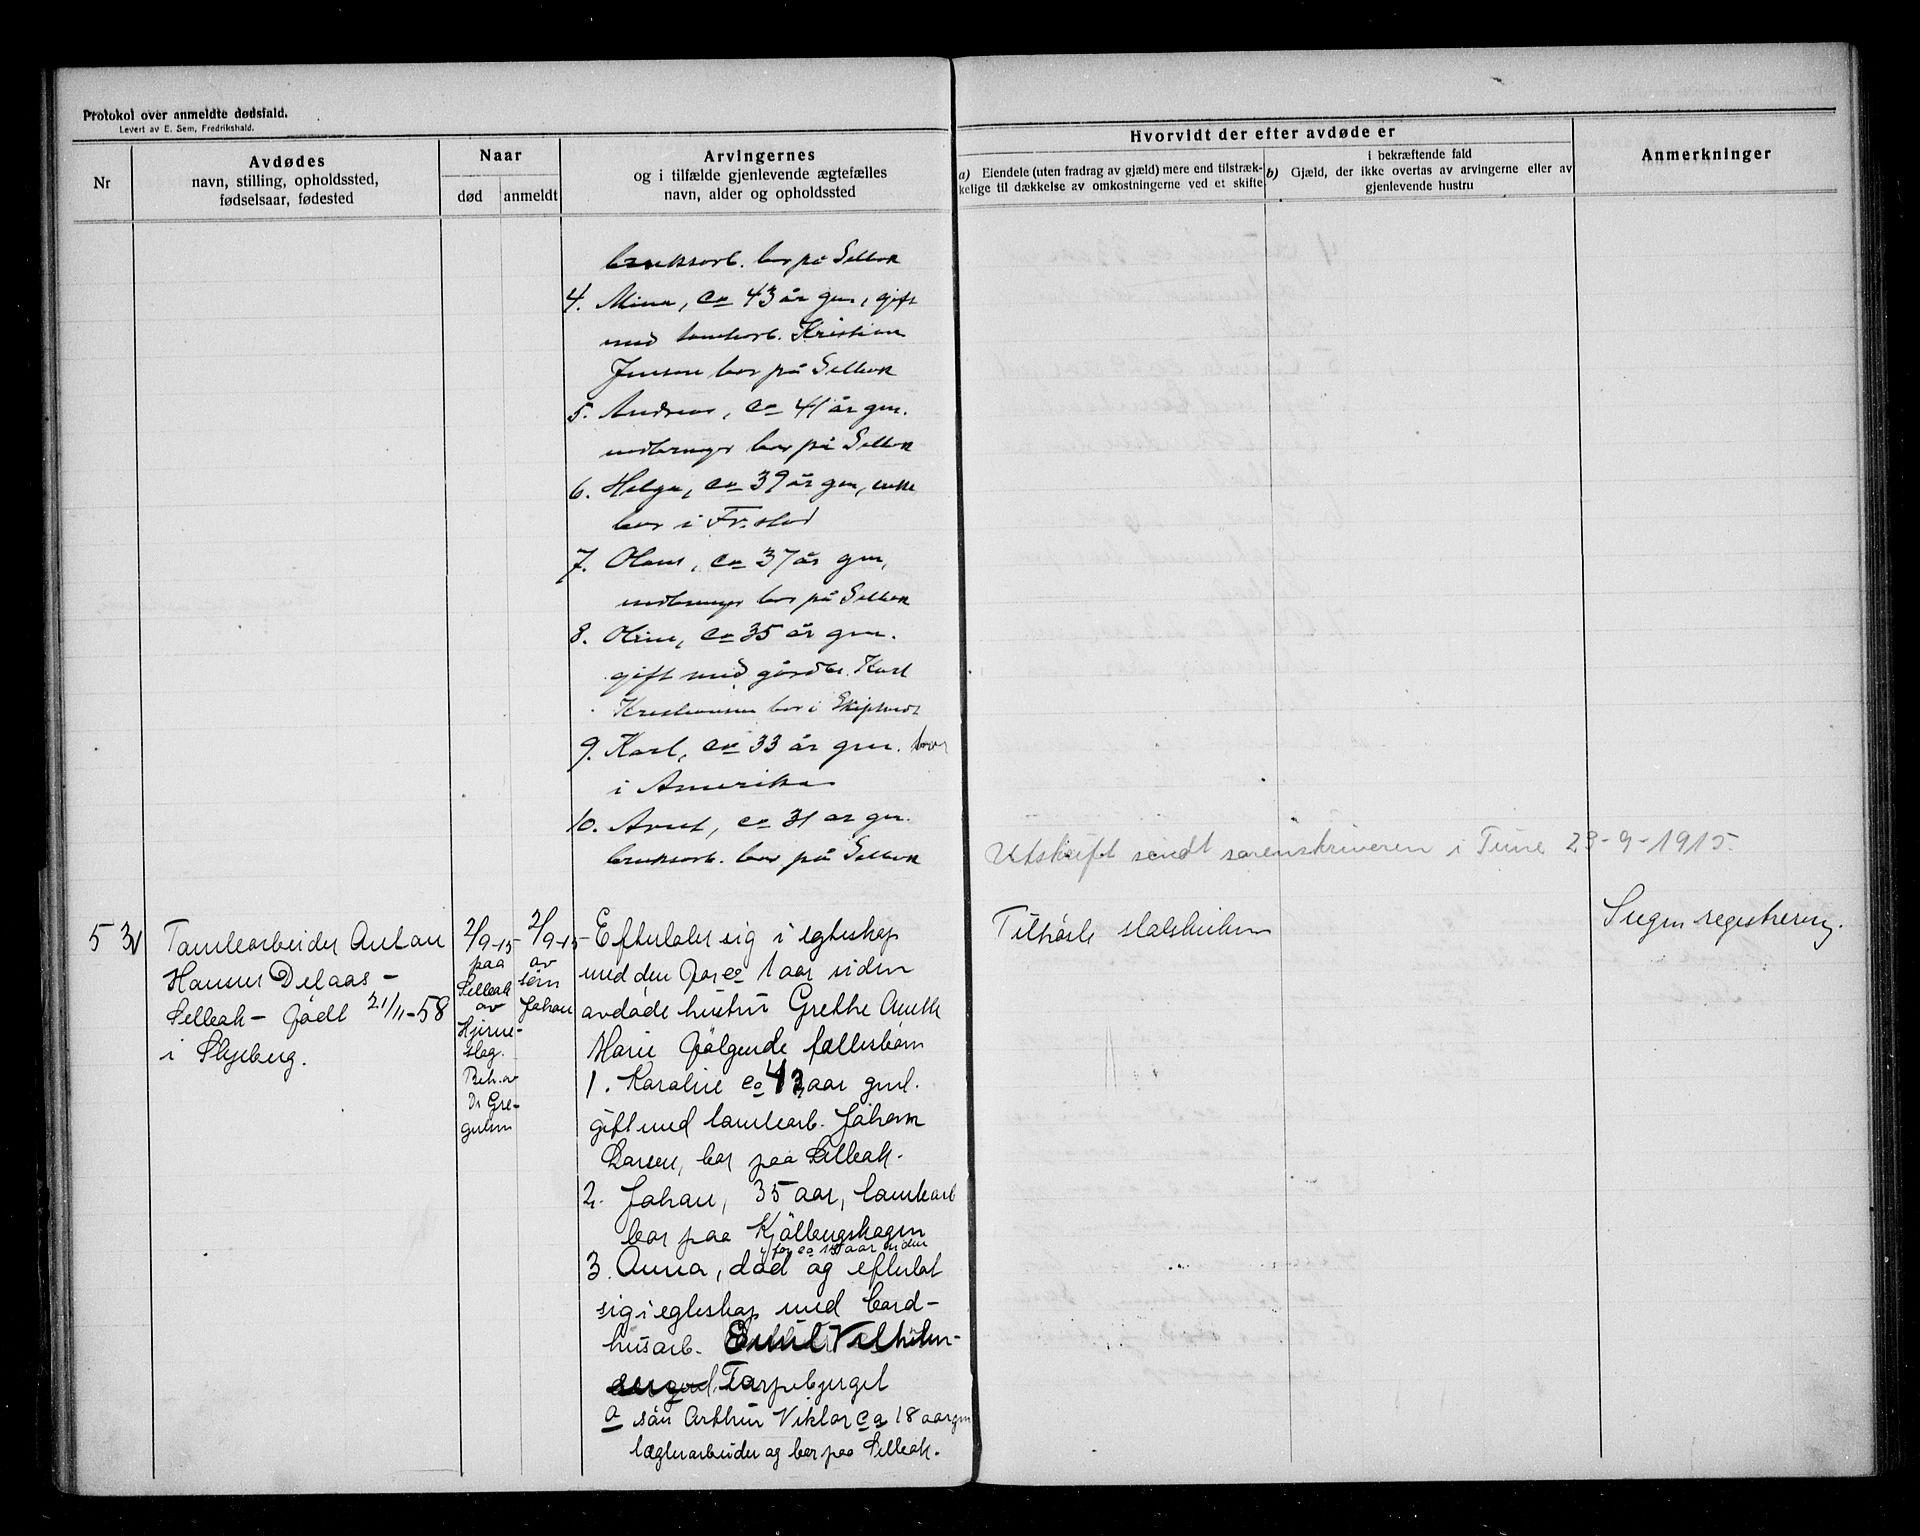 Protokol over anmeldte dødsfald.
Levert av E. Sem, Fredrikshald.
Nr
Avdødes
navn, stilling, opholdssted,
fødselsaar, fødested
Naar
død
anmeldt
Arvingernes
og i tilfælde gjenlevende ægtefælles
navn, alder og opholdssted
Hvorvidt der efter avdøde er
a) Eiendele (uten fradrag av gjæld) mere end tilstræk-
kelige til dækkelse av omkostningerne ved et skifte
i bekræftende fald
b) Gjæld, der ikke overtas av arvingerne eller av
gjenlevende hustru
Anmerkninger
bruksarb. bor på Sellebak
4. Mina, ca 43 år gm, gift
med tomtearb. Kristian
Jensen bor på Sellebak
5. Andreas, ca 41 år gm.
bor på Sellebak
6. Helga, ca 39 år gm, enke
bor i Fr.stad
7. Olaus, ca 37 år gm,
bor på Sellebak
8. Oline, ca 35 år gm.
gift med gårdbr. Karl
Kristiansen bor i Skiptvedt
9. Karl, ca 33 år gm. bor
i Amerika
10. ca 31 ar gm.
bruksarb. bor på Sellebak
Utskrift sendt sorenskriveren i Tune 23-9-1915.
53
Tomtearbeider Anton
Hansen
Selleak - født 21/11-58
i Skjeberg.
2/9-15
paa
Selleak
av
Hjerne-
slag.
Beh. av
Dr Gre-
gersen
2/9-15
av
søn
Johan
Efterlater sig i egteskap
med den for ca 1 aar siden
avdøde hustru Grethe Anette
Marie følgende fællesbørn
1. Karoline ca 42 aar gml.
gift med tomtearb. Johan
Larsen, bor paa Selleak.
2. Johan, 35 aar, tomtearb
bor paa Kjølbergskogen
for ca 15 aar siden
3. Anna, død og efterlot
sig i egteskap med
husarb. Emil Vilhelm-
Torpebjerget
a søn Arthur Viktor ca 18 aar gm
teglverkarbeider og bor paa Selleak.
Tilhørte statskirken
Ingen registrering.